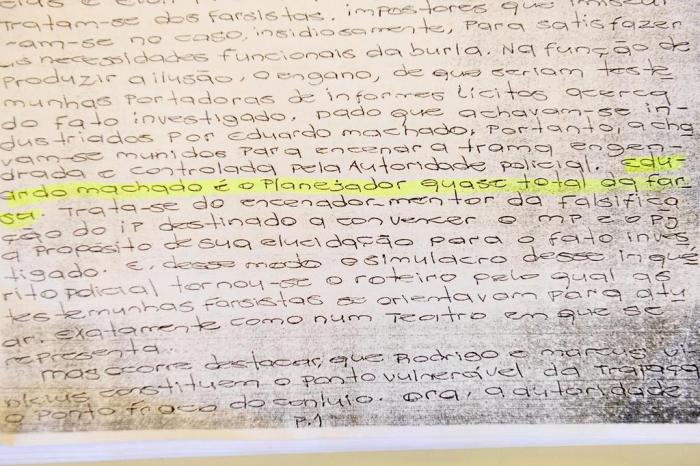 Tratam-se dos farsistas. impostores que imiscui
-am-se no caso, insidiosamente, para satisfazer
as necessidades funcionais da burla. Na função de
produzir a ilusão, o engano, de que seriam teste
munhas portadoras de informes lícitos acerca
do fato investigado. Dado que achavam-se in-
dustriados por Eduardo machado, portanto, acha
vam-se munidos para encenar a trama engen-
drada e controlada pela Autoridade policial. Edu-
ardo machado é o planejador quase total da far
sa. Trata-se do encenador-mentor da falsifica
ção do ip destinado a convencer o MP e o PJ
a propósito de sua elucidação para o fato inves
tigado. E, desse modo o simulacro desse inqué
rito policial tornou-se o roteiro pelo qual as
testemunhas farsistas se orientavam para atu
ar. exatamente como num Teatro em que se
representa.
mas ocorre destacar, que Rodrigo e marcus vi
nicius constituem o ponto vulnerável da trapaça
o ponto fraco do conluio. Ora, a autoridade
p.1